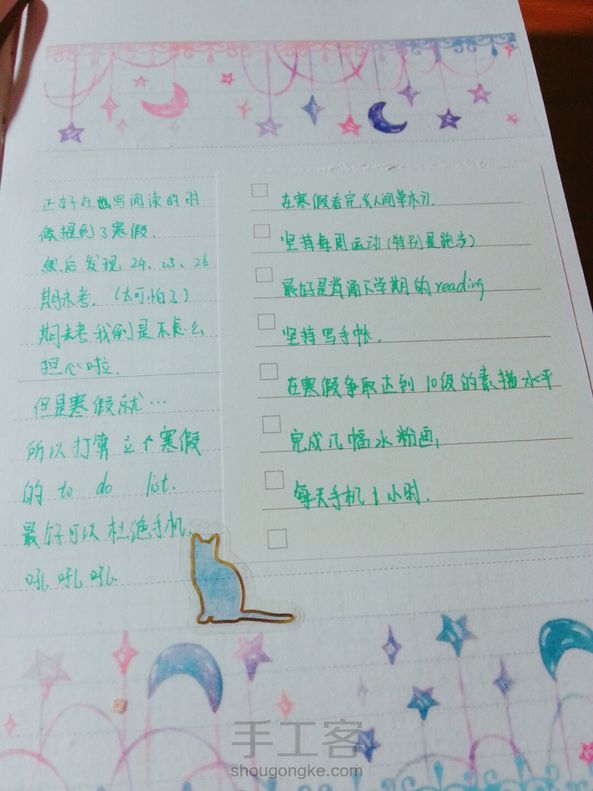 正好在写阅读的时
候提到了寒假.
然后发现 24、25、26
期末考.(太可怕了)
期末考我倒是不怎么
担心啦.
但是寒假就…
所以打算立个寒假
的 to do list.
最好可以杜绝手机
吼吼吼
在寒假看完《人间草木》.
坚持每周运动(特别是跑步)
最好是背诵下学期的 reading
坚持写手帐.
在寒假争取达到 10级的素描水平
完成几幅水粉画,
每天手机 1 小时.
手工客
shougongke.com